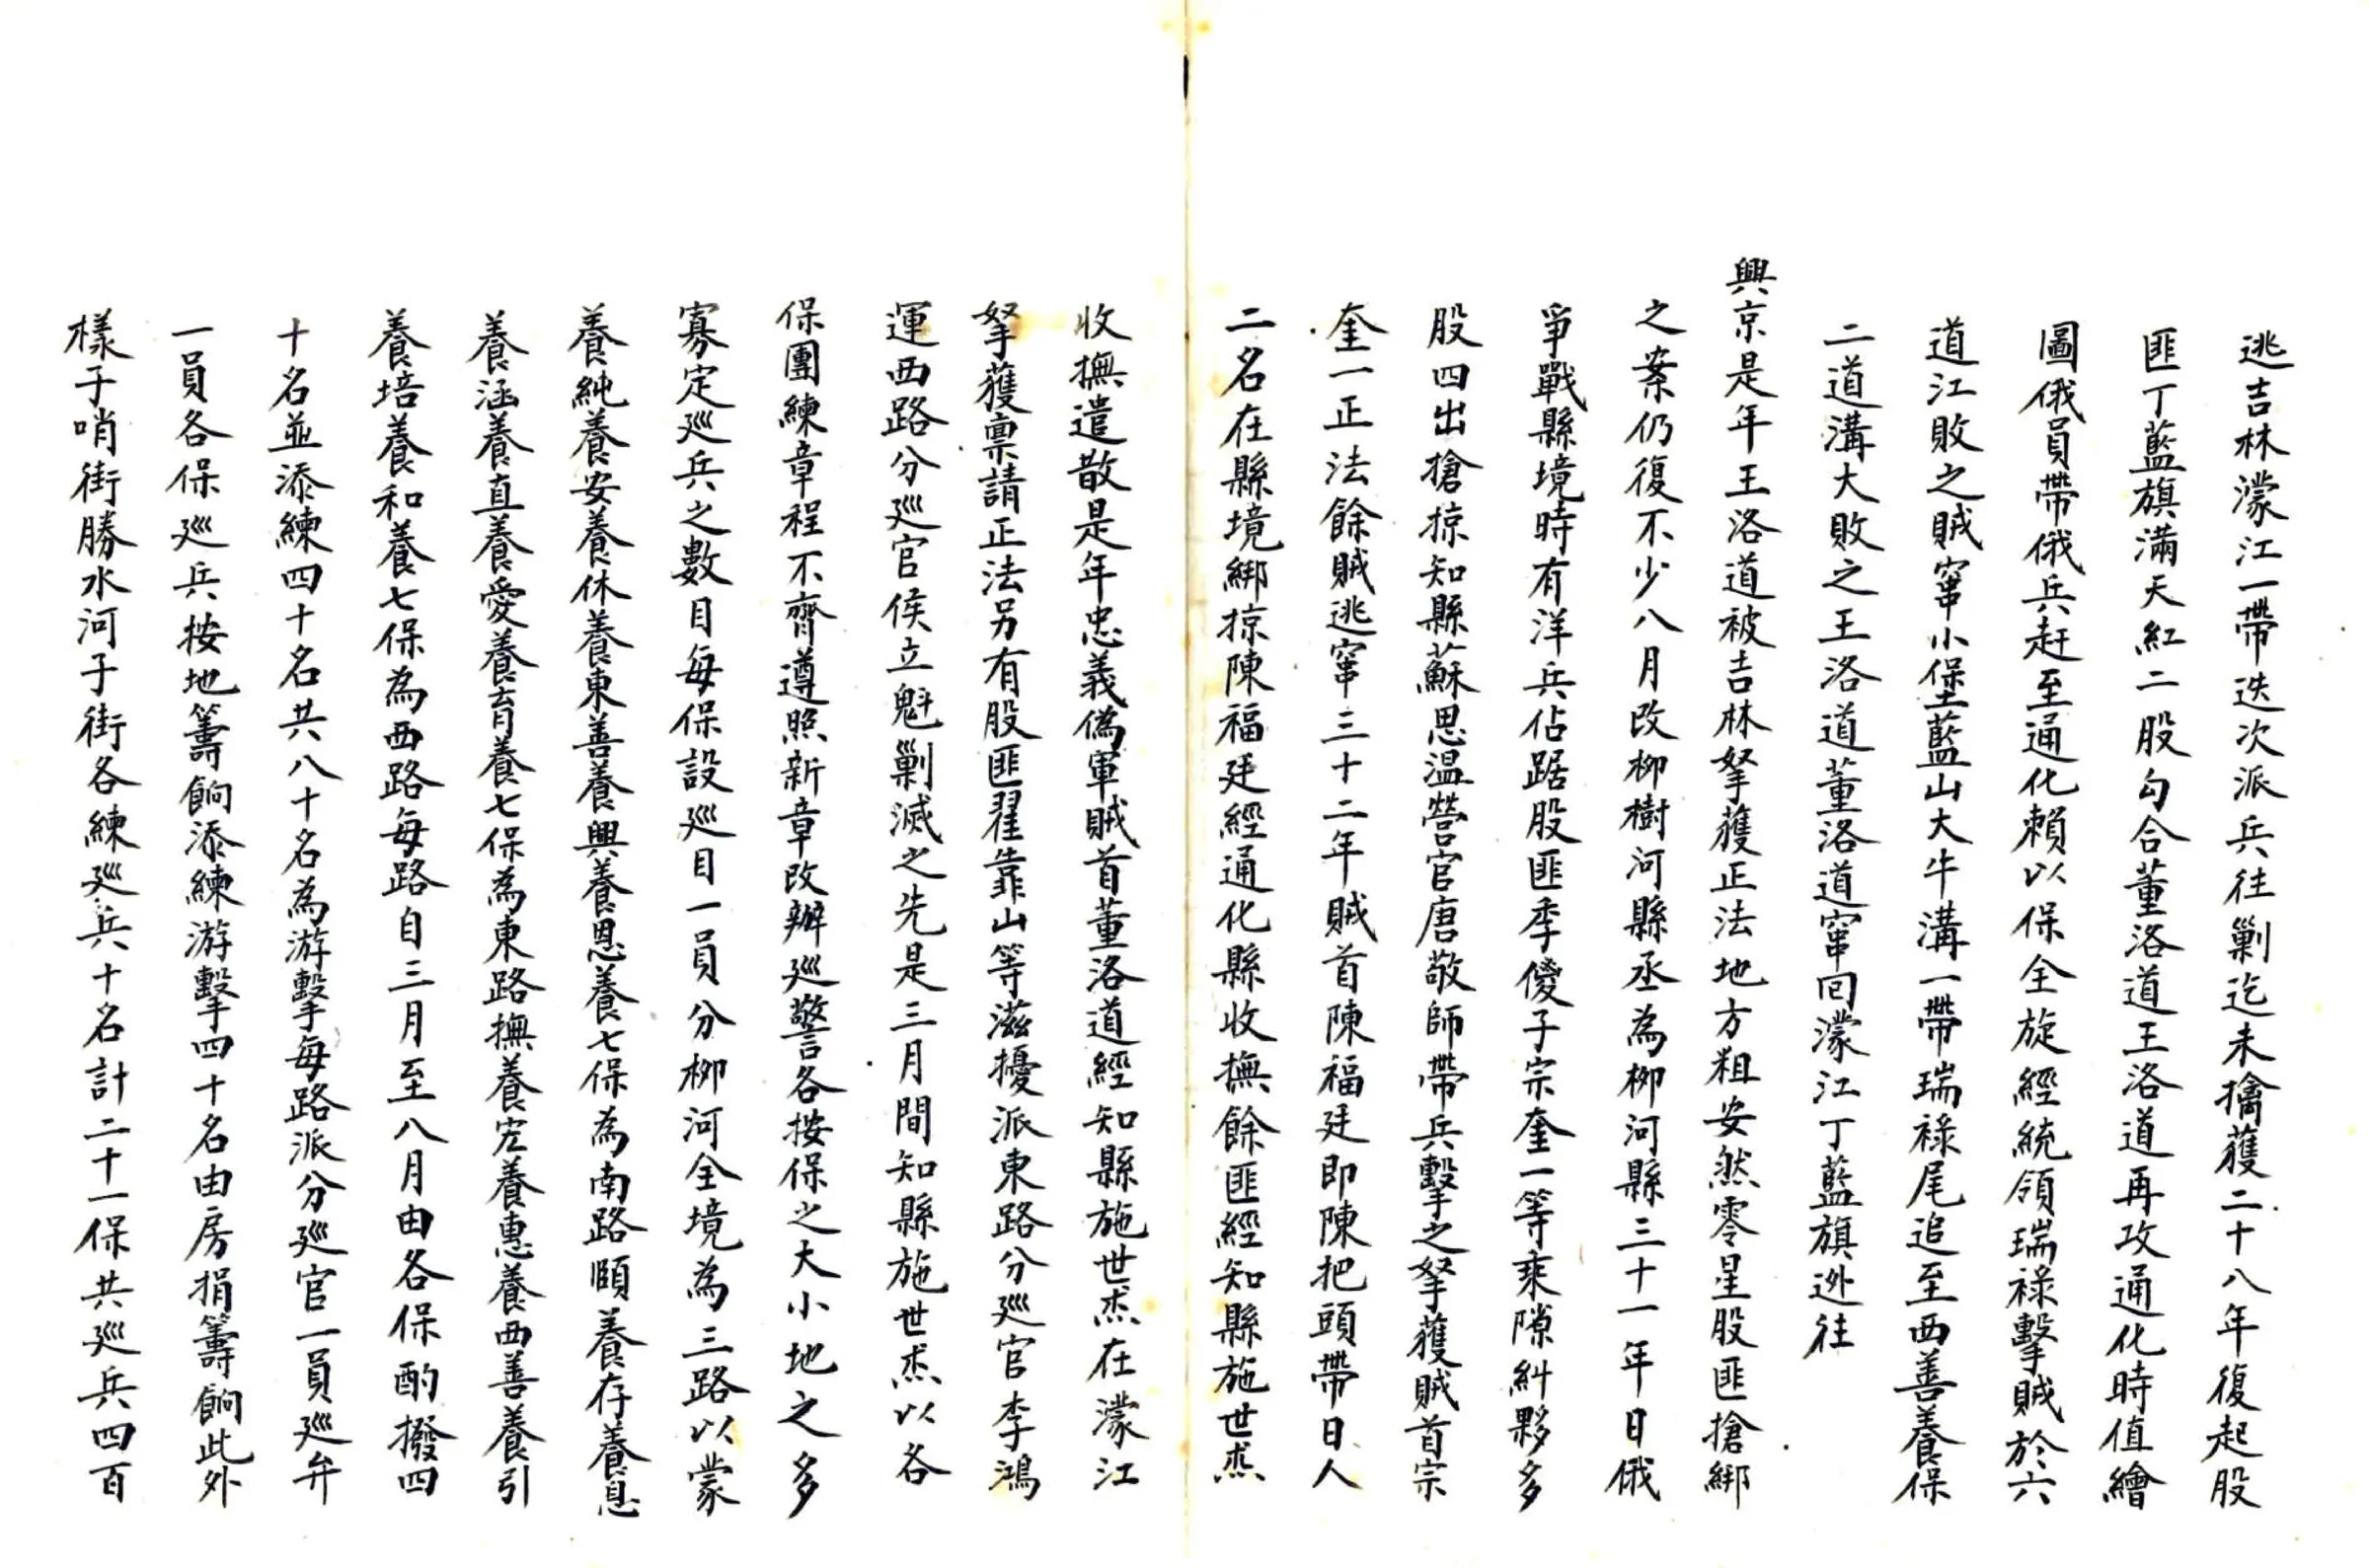 逃吉林濛江一帶迭次派兵往剿迄未擒獲二十八年復起股
匪丁藍旗滿天紅二股勾合董洛道王洛道再攻通化時值繪
圖俄員帶俄兵赶至通化賴以保全旋經統領瑞祿擊賊於六
道江敗之賊竄小堡藍山大牛溝一帶瑞祿尾追至西善養保
二道溝大敗之王洛道董洛道竄回濛江丁藍旗迯往
興京是年王洛道被吉林拏獲正法地方粗安然零星股匪搶綁
之案仍復不少八月改柳樹河縣丞為柳河縣三十一年日俄
爭戰縣境時有洋兵佔踞股匪季傻子宗奎一等乘隙糾夥多
股四出搶掠知縣蘇思温營官唐敬師帶兵擊之拏獲賊首宗
奎一正法餘賊逃竄三十二年賊首陳福廷即陳把頭帶日人
二名在縣境綁掠陳福廷經通化縣收撫餘匪經知縣施世杰
收撫遣散是年忠義偽軍賊首董洛道經知縣施世杰在濛江
拏獲稟請正法另有股匪翟靠山等滋擾派東路分巡官李鴻
運西路分巡官侯立魁剿滅之先是三月間知縣施世杰以各
保團練章程不齊遵照新章改辦巡警各按保之大小地之多
寡定巡兵之數目每保設巡目一員分柳河全境為三路以蒙
養純養安養休養東善養興養恩養七保為南路頤養存養息
養涵養直養愛養育養七保為東路撫養宏養惠養西善養引
養培養和養七保為西路每路自三月至八月由各保酌撥四
十名並添練四十名共八十名為游擊每路派分巡官一員巡弁
一員各保巡兵按地籌餉添練游擊四十名由房捐籌餉此外
樣子哨街勝水河子街各練巡兵十名計二十一保共巡兵四百